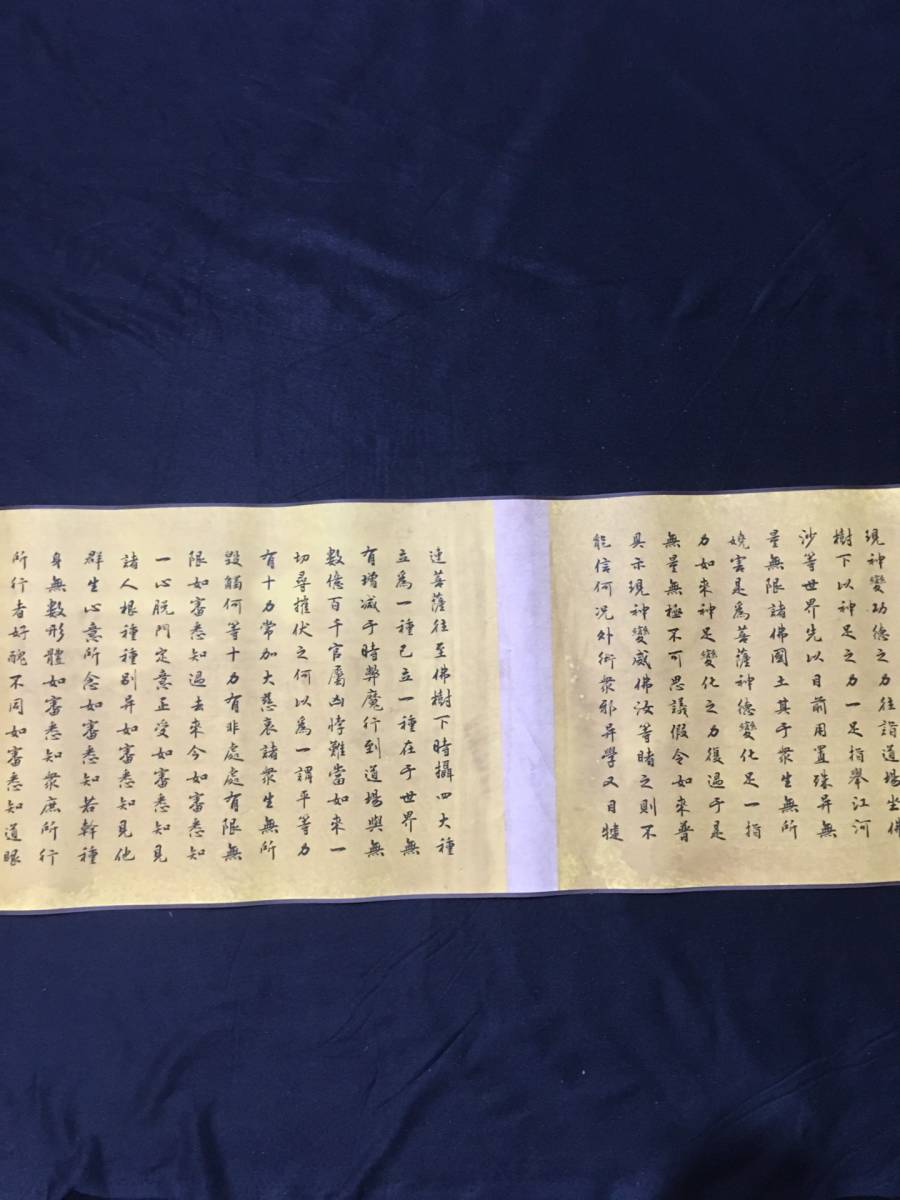 現神變功德之力往詣道場坐佛
樹下以神足之力一足指舉江河
沙等世界先以目前用置殊异無
量無限諸佛國土其于衆生無所
嬈害是爲菩薩神德變化足一指
力如來神足變化之力復過于是
無量無極不可思議假令如來普
具示現神變威佛汝等睹之則不
能信何况外術衆邪异學又目犍
連菩薩往至佛樹下時攝四大種
立爲一種已立一種在于世界無
有增减于時弊魔行到道場與無
數億百千官屬凶悖難當如來一
切尋摧伏之何以爲一謂平等力
有十力常加大慈哀諸衆生無所
毀觸何等十力有非處處有限無
限如審悉知過去來今如審悉知
一心脱門定意正受如審悉知見
諸人根種種别异如審悉知見他
群生心意所念如審悉知若幹種
身無數形體如審悉知衆庶所行
所行者好醜不同如審悉知道眼